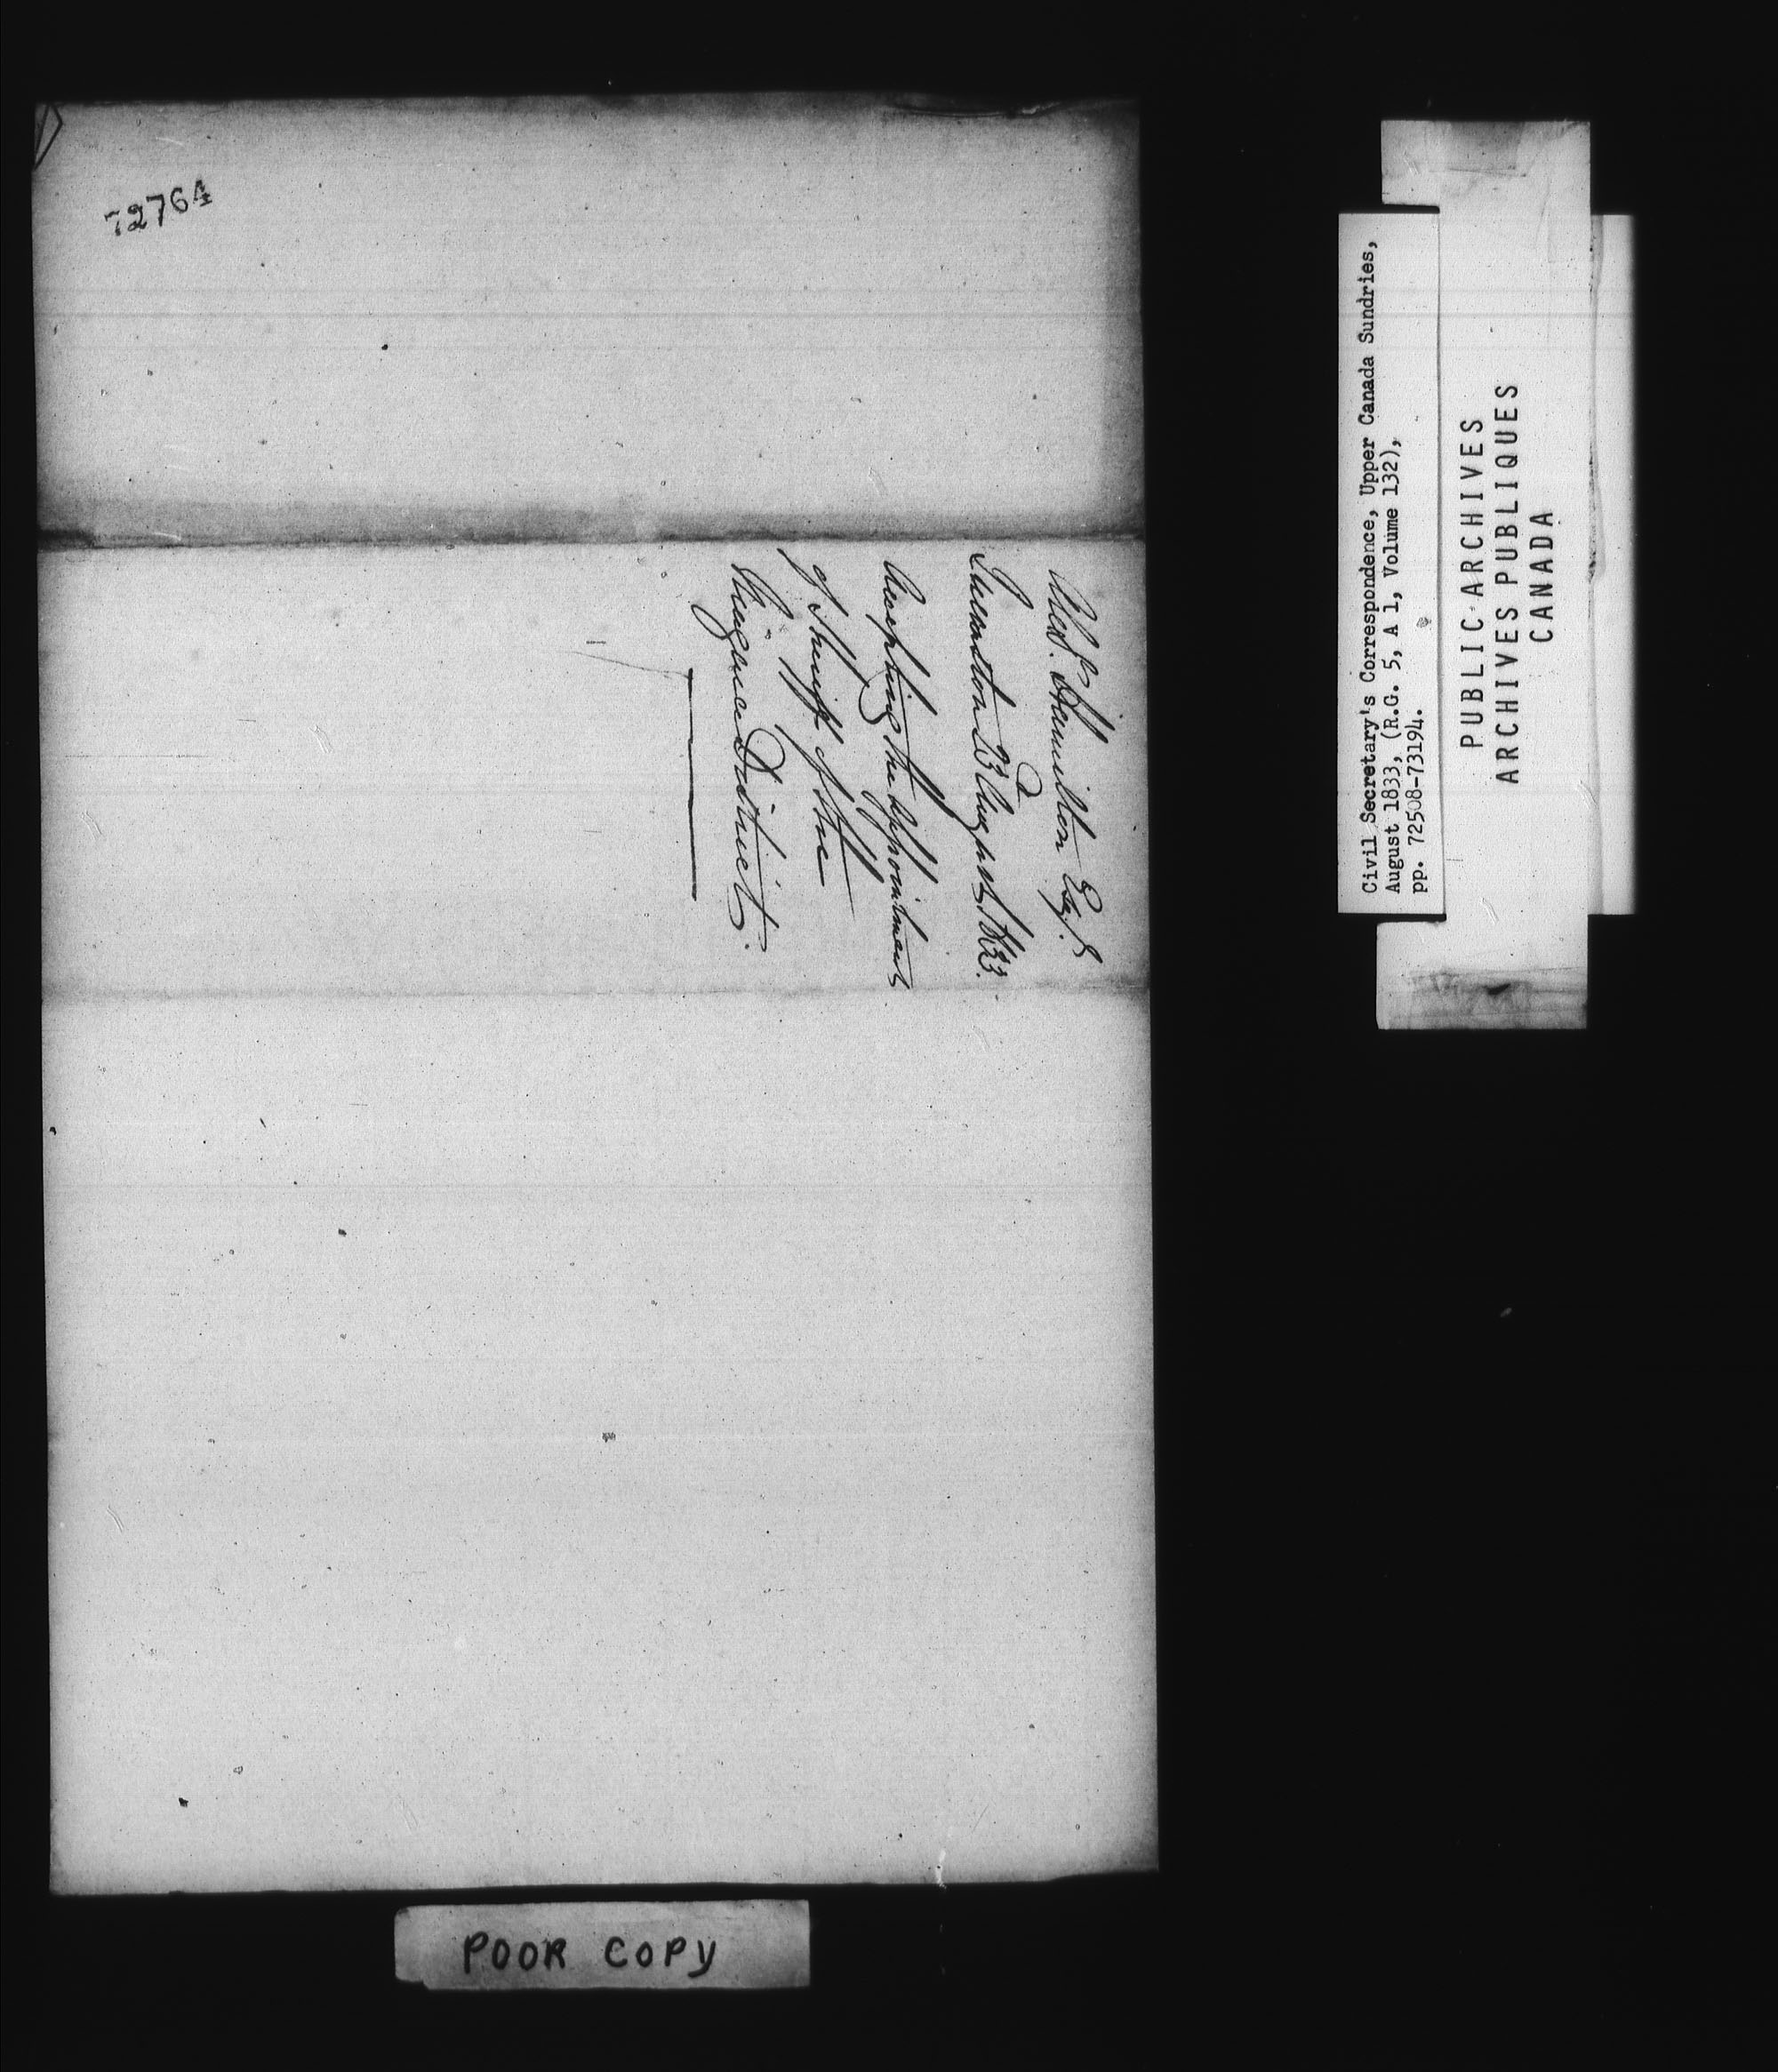 72764
Alexr. Hamilton Esqr.
Queenston 23d August 1833.
Accepting the appointment
of Sheriff of the
Niagara District.
Civil Secretary's Correspondence, Upper Canada Sundries,
August 1833, (R.G. 5, A 1, Volume 132),
pp. 72508-73194.
PUBLIC ARCHIVES
ARCHIVES PUBLIQUES
CANADA
POOR COPY